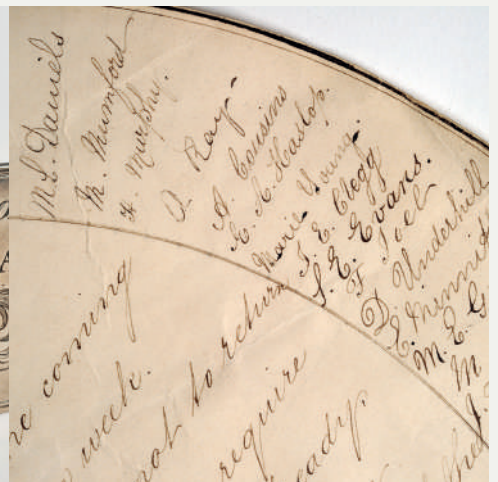 M. L. Daniels
M. Mumford
H. Murphy.
A. Ray
A. Cousins
E. A. Haslop.
Marie Young.
T. E. Clegg
S. E. Evans.
F. Joel
D. Underhill
E.
M. E. G
M
J.
coming
week.
not to return
require
eady.